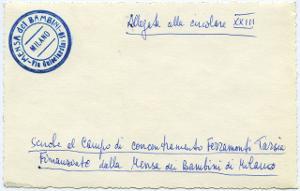 MENSA dei BAMBINI
MILANO
Allegato alla circolare XXIII
Scuole al Campo di concentramento Ferramonti Tarsia
Finanziate dalla Mensa dei Bambini di Milano